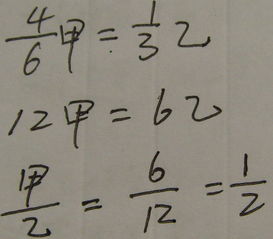 4/6 甲 = 1/3 乙
12 甲 = 6 乙
甲/乙 = 6/12 = 1/2